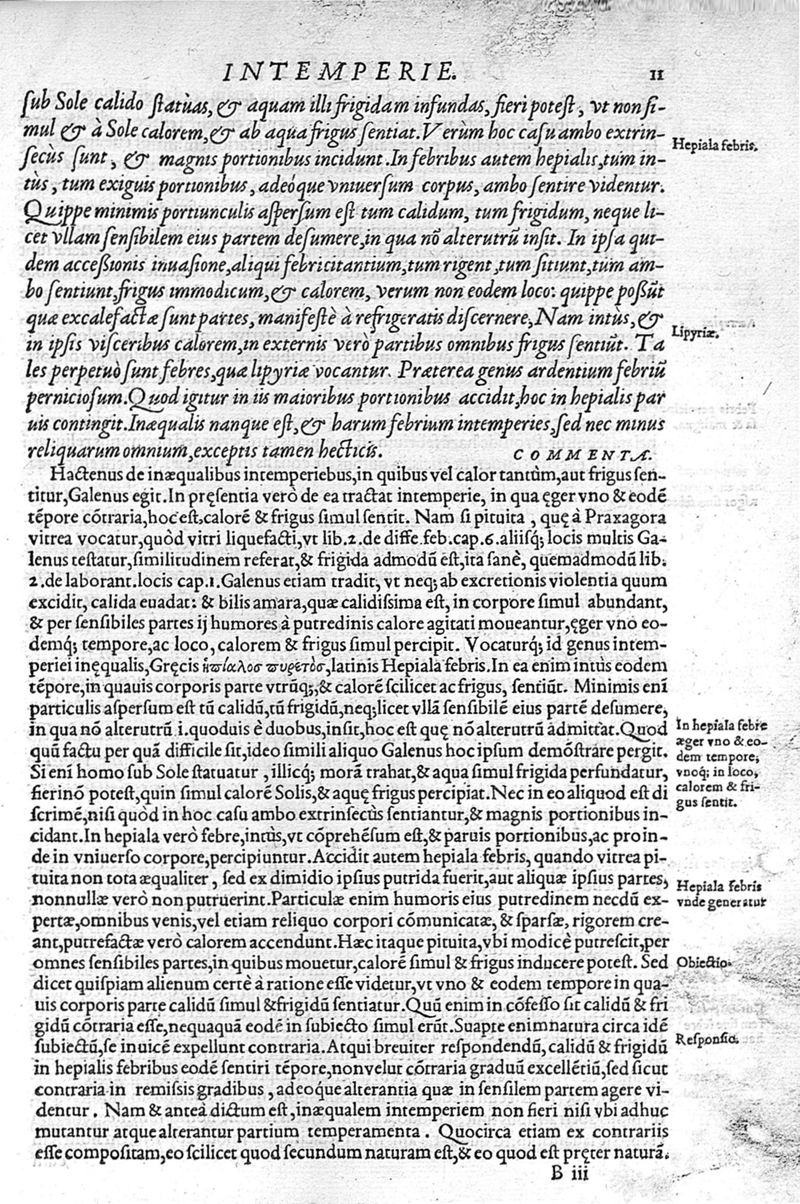 INTEMPERIE. 11
sub Sole calido statùas, & aquam illi frigidam infundas, fieri potest, vt non si-
mul & à Sole calorem, & ab aqua frigus sentiat. Verùm hoc casu ambo extrin-
secùs sunt, & magnis portionibus incidunt. In febribus autem hepialis, tùm in-
Hepiala febris.
tùs, tum exiguis portionibus, adeóque vniuersum corpus, ambo sentire videntur.
Quippe minimis portiunculis aspersum est tum calidum, tum frigidum, neque li-
cet vllam sensibilem eius partem desumere, in qua nō alterutrū insit. In ipsa qui-
dem accessionis inuasione, aliqui febricitantium, tum rigent, tum sitiunt, tùm am-
bo sentiunt, frigus immodicum, & calorem, verum non eodem loco: quippe possūt
quæ excalefactæ sunt partes, manifestè à refrigeratis discernere, Nam intùs, &
Lipyriæ.
in ipsis visceribus calorem, in externis verò partibus omnibus frigus sentiūt. Ta
les perpetuò sunt febres, quæ lipyriæ vocantur. Præterea genus ardentium febriū
perniciosum. Quod igitur in iis maioribus portionibus accidit, hoc in hepialis par
uis contingit. Inæqualis nanque est, & harum febrium intemperies, sed nec minus
reliquarum omnium, exceptis tamen hecticis. COMMENTA.
Hactenus de inæqualibus intemperiebus, in quibus vel calor tantùm, aut frigus sen-
titur, Galenus egit. In pręsentia verò de ea tractat intemperie, in qua ęger vno & eodē
tēpore cōtraria, hoc est, calorē & frigus simul sentit. Nam si pituita, quę à Praxagora
vitrea vocatur, quòd vitri liquefacti, vt lib. 2. de diffe. feb. cap. 6. aliisq; locis multis Ga-
lenus testatur, similitudinem referat, & frigida admodū est, ita sanè, quemadmodū lib.
2. de laborant. locis cap. 1. Galenus etiam tradit, vt neq; ab excretionis violentia quum
excidit, calida euadat: & bilis amara, quæ calidissima est, in corpore simul abundant,
& per sensibiles partes ij humores à putredinis calore agitati moueantur, ęger vno eo-
demq; tempore, ac loco, calorem & frigus simul percipit. Vocaturq; id genus intem-
periei inęqualis, Gręcis ἠπίαλος πυρετὸς, latinis Hepiala febris. In ea enim intùs eodem
tēpore, in quauis corporis parte vtrūq;, & calorē scilicet ac frigus, sentiūt. Minimis enī
particulis aspersum est tū calidū, tū frigidū, neq; licet vllā sensibilē eius partē desumere,
in qua nō alterutrū .i. quoduis è duobus, insit, hoc est quę nō alterutrū admittat. Quod
In hepiala febre
æger vno & eo-
dem tempore,
vnoq; in loco,
calorem & fri-
gus sentit.
quū factu per quā difficile sit, ideo simili aliquo Galenus hoc ipsum demōstrare pergit.
Si enī homo sub Sole statuatur, illicq; morā trahat, & aqua simul frigida perfundatur,
fierinō potest, quin simul calorē Solis, & aquę frigus percipiat. Nec in eo aliquod est di
scrimē, nisi quòd in hoc casu ambo extrinsecùs sentiantur, & magnis portionibus in-
cidant. In hepiala verò febre, intùs, vt cōprehēsum est, & paruis portionibus, ac proin-
de in vniuerso corpore, percipiuntur. Accidit autem hepiala febris, quando vitrea pi-
tuita non tota æqualiter, sed ex dimidio ipsius putrida fuerit, aut aliquæ ipsius partes,
Hepiala febris
vnde generatur
nonnullæ verò non putruerint. Particulæ enim humoris eius putredinem necdū ex-
pertæ, omnibus venis, vel etiam reliquo corpori cōmunicatæ, & sparsæ, rigorem cre-
ant, putrefactæ verò calorem accendunt. Hæc itaque pituita, vbi modicè putrescit, per
omnes sensibiles partes, in quibus mouetur, calorē simul & frigus inducere potest. Sed
Obiectio.
dicet quispiam alienum certè à ratione esse videtur, vt vno & eodem tempore in qua-
uis corporis parte calidū simul & frigidū sentiatur. Quū enim in cōfesso sit calidū & fri
gidū cōtraria esse, nequaquā eodē in subiecto simul erūt. Suapte enim natura circa idē
subiectū, se inuicē expellunt contraria. Atqui breuiter respondendū, calidū & frigidū
Responsio.
in hepialis febribus eodē sentiri tēpore, non velut cōtraria graduū excellētiū, sed sicut
contraria in remissis gradibus, adeòque alterantia quæ in sensilem partem agere vi-
dentur. Nam & anteà dictum est, inæqualem intemperiem non fieri nisi vbi adhuc
mutantur atque alterantur partium temperamenta. Quocirca etiam ex contrariis
esse compositam, eo scilicet quod secundum naturam est, & eo quod est pręter naturā.
B iii